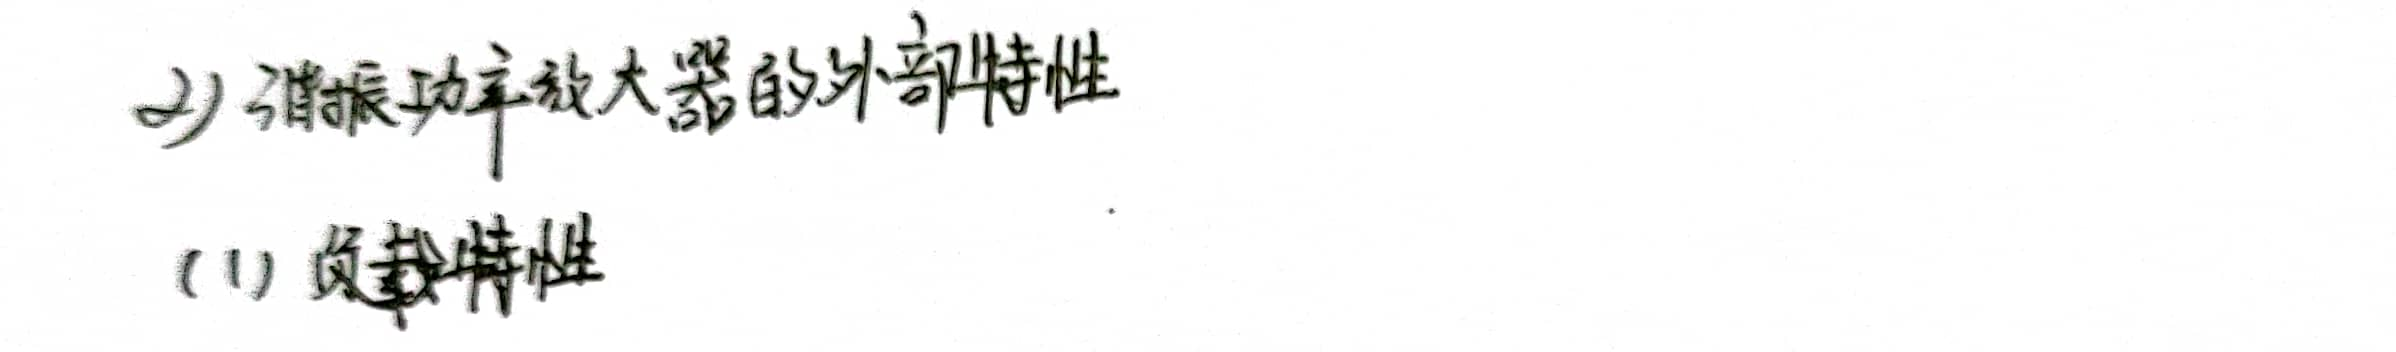 2) 谐振功率放大器的外部特性
(1) 负载特性